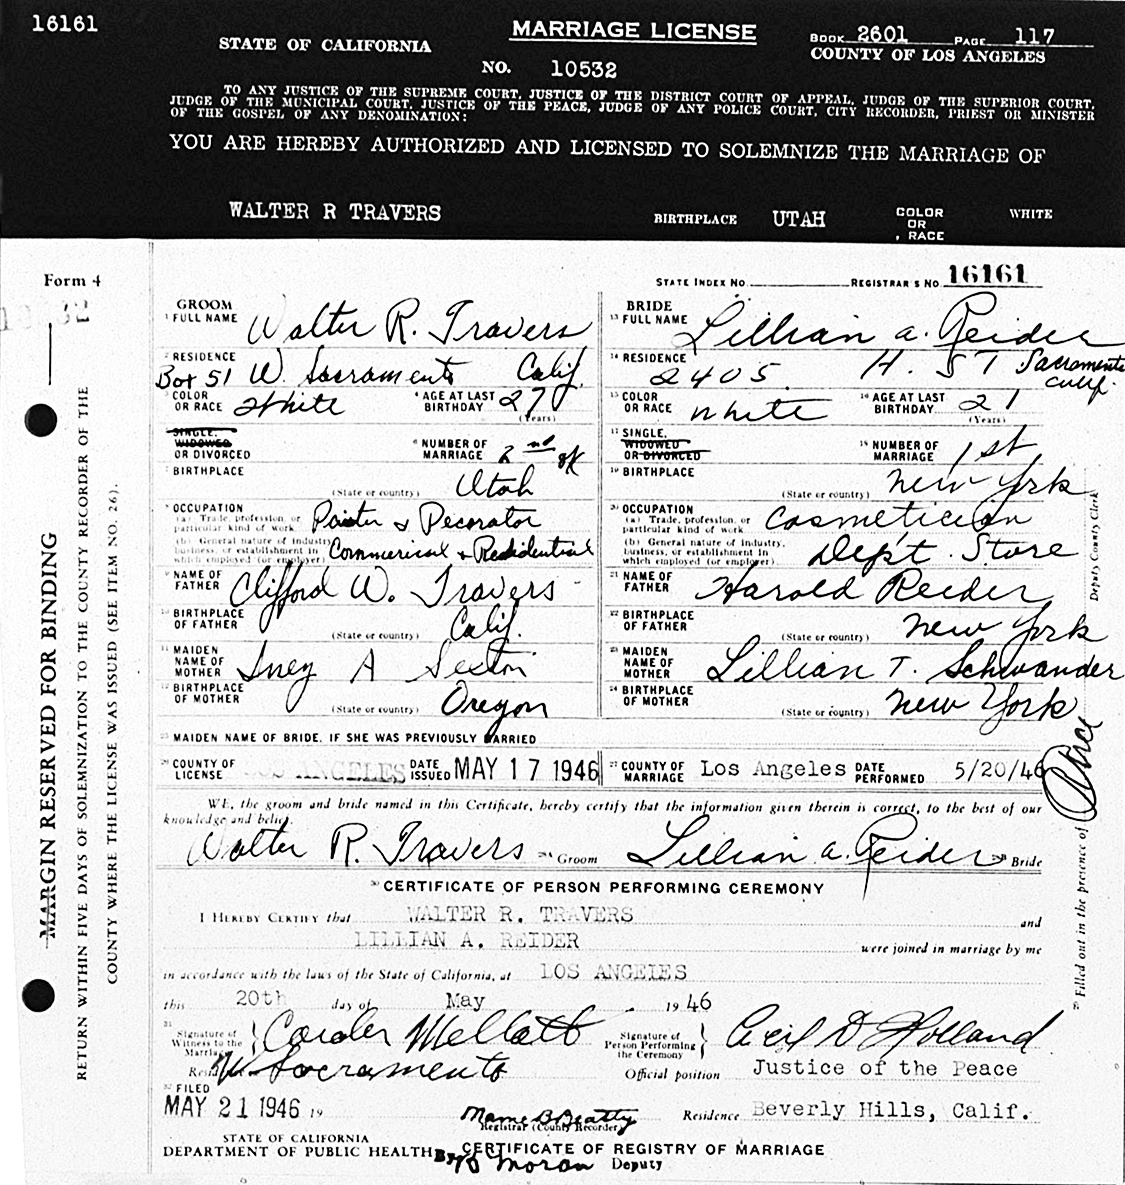 16161
MARRIAGE LICENSE
STATE OF CALIFORNIA
BOOK 2601 PAGE 117
COUNTY OF LOS ANGELES
NO. 10532
TO ANY JUSTICE OF THE SUPREME COURT, JUSTICE OF THE DISTRICT COURT OF APPEAL, JUDGE OF THE SUPERIOR COURT,
JUDGE OF THE MUNICIPAL COURT, JUSTICE OF THE PEACE, JUDGE OF ANY POLICE COURT, CITY RECORDER, PRIEST OR MINISTER
OF THE GOSPEL OF ANY DENOMINATION:
YOU ARE HEREBY AUTHORIZED AND LICENSED TO SOLEMNIZE THE MARRIAGE OF
WALTER R TRAVERS BIRTHPLACE UTAH COLOR OR RACE WHITE
Form 4
STATE INDEX NO. REGISTRAR'S NO. 16161
GROOM
1 FULL NAME Walter R. Travers
2 RESIDENCE Box 51 W. Sacramento Calif.
3 COLOR OR RACE White 4 AGE AT LAST BIRTHDAY 27 (Years)
SINGLE, WIDOWED OR DIVORCED 6 NUMBER OF MARRIAGE 2nd
7 BIRTHPLACE (State or country) Utah
8 OCCUPATION
(a) Trade, profession, or particular kind of work Painter & Decorator
(b) General nature of industry, business, or establishment in which employed (or employer) Commerical & Residential
9 NAME OF FATHER Clifford W. Travers
10 BIRTHPLACE OF FATHER (State or country) Calif.
11 MAIDEN NAME OF MOTHER Iney A Sexton
12 BIRTHPLACE OF MOTHER (State or country) Oregon
BRIDE
13 FULL NAME Lillian A. Reider
14 RESIDENCE 2405 H. ST Sacramento Calif.
15 COLOR OR RACE White 16 AGE AT LAST BIRTHDAY 21 (Years)
17 SINGLE, WIDOWED OR DIVORCED 18 NUMBER OF MARRIAGE 1st
19 BIRTHPLACE (State or country) New York
20 OCCUPATION
(a) Trade, profession, or particular kind of work Cosmetician
(b) General nature of industry, business, or establishment in which employed (or employer) Dep't. Store
21 NAME OF FATHER Harold Reider
22 BIRTHPLACE OF FATHER (State or country) New York
23 MAIDEN NAME OF MOTHER Lillian T. Schwander
24 BIRTHPLACE OF MOTHER (State or country) New York
25 MAIDEN NAME OF BRIDE, IF SHE WAS PREVIOUSLY MARRIED
26 COUNTY OF LICENSE LOS ANGELES DATE ISSUED MAY 17 1946
27 COUNTY OF MARRIAGE Los Angeles DATE PERFORMED 5/20/46
WE, the groom and bride named in this Certificate, hereby certify that the information given therein is correct, to the best of our
knowledge and belief.
Walter R. Travers Groom Lillian A. Reider Bride
30 CERTIFICATE OF PERSON PERFORMING CEREMONY
I HEREBY CERTIFY that WALTER R. TRAVERS and
LILLIAN A. REIDER were joined in marriage by me
in accordance with the laws of the State of California, at LOS ANGELES
this 20th day of May, 1946
31 Signature of Witness to the Marriage
Signature of Person Performing the Ceremony Cecil D Holland
W Sacramento
Official position Justice of the Peace
32 FILED
MAY 21 1946 19
Mame B Beatty
Registrar (County Recorder)
Residence Beverly Hills, Calif.
STATE OF CALIFORNIA
DEPARTMENT OF PUBLIC HEALTH
CERTIFICATE OF REGISTRY OF MARRIAGE
By Moran Deputy
MARGIN RESERVED FOR BINDING
RETURN WITHIN FIVE DAYS OF SOLEMNIZATION TO THE COUNTY RECORDER OF THE
COUNTY WHERE THE LICENSE WAS ISSUED (SEE ITEM NO. 26).
Filled out in the presence of Deputy County Clerk